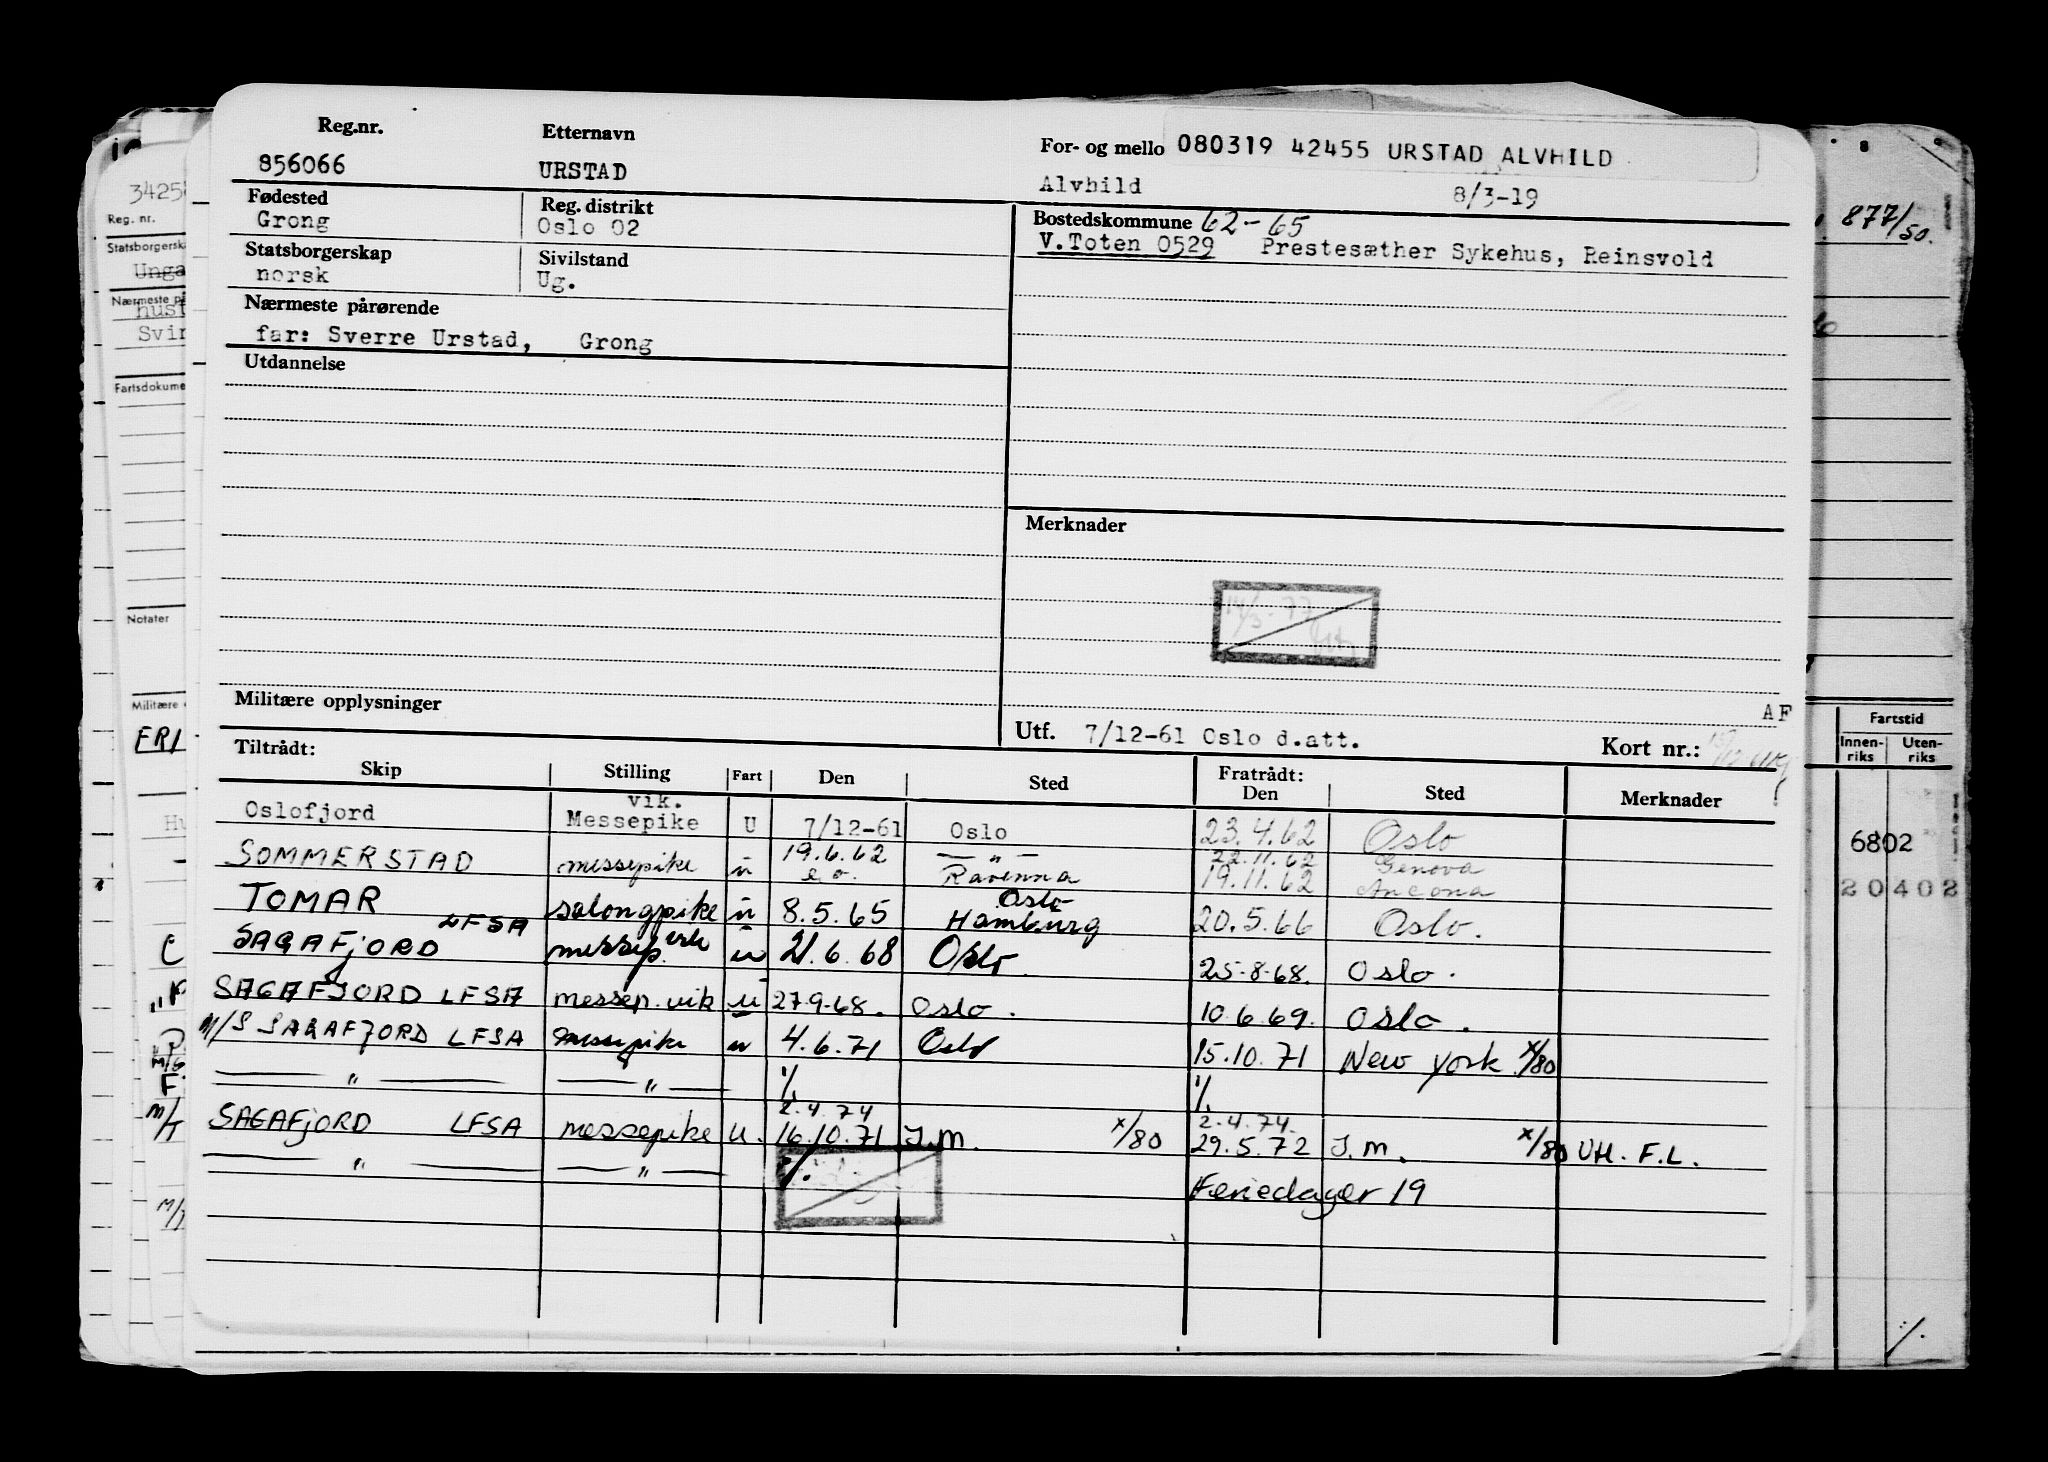 Reg.nr. Etternavn For- og mello 080319 42455 URSTAD ALVHILD
856066 URSTAD Alvhild 8/3-19
Fødested Reg. distrikt Bostedskommune 62-65
Grong Oslo 02 V.Toten 0529 Prestesæther Sykehus, Reinsvold
Statsborgerskap Sivilstand
norsk Ug.
Nærmeste pårørende
far: Sverre Urstad, Grong
Utdannelse
Merknader
14/3-77
Militære opplysninger
AF
Utf. 7/12-61 Oslo d.att. Kort nr.:
Tiltrådt: Fratrådt:
Skip Stilling Fart Den Sted Den Sted Merknader
Oslofjord vik. Messepike U 7/12-61 Oslo 23.4.62 Oslo
SOMMERSTAD messepike u 19.6.62 — " — 22.11.62 Genova
Ravenna 19.11.62 Ancona
TOMAR salongpike u 8.5.65 Oslo Hamburg 20.5.66 Oslo.
SAGAFJORD LFSA messep. vik u 21.6.68 Oslo 25-8-68. Oslo.
SAGAFJORD LFSA messep. vik u 27-9-68. Oslo. 10.6.69. Oslo.
M/S SAGAFJORD LFSA messepike u 4.6.71 Oslo 15.10.71 New York x/80
— " — — " — ./. ./.
2.4.74 2.4.74.
SAGAFJORD LFSA messepike u. 16.10.71 I.M. x/80 29.5.72 I.M. x/80 UH. F.L.
— " — — " — ./.
Feriedager 19
34258
Reg. nr.
Statsborgersk
Unga
Nærmeste p
hust
Svin
Fartsdokume
Notater
Militære
FRI
Hu
C
F
M/T
877/50.
Fartstid
Innen-riks Uten-riks
6802
20402
./.